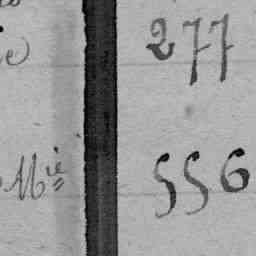 277
Mié 556